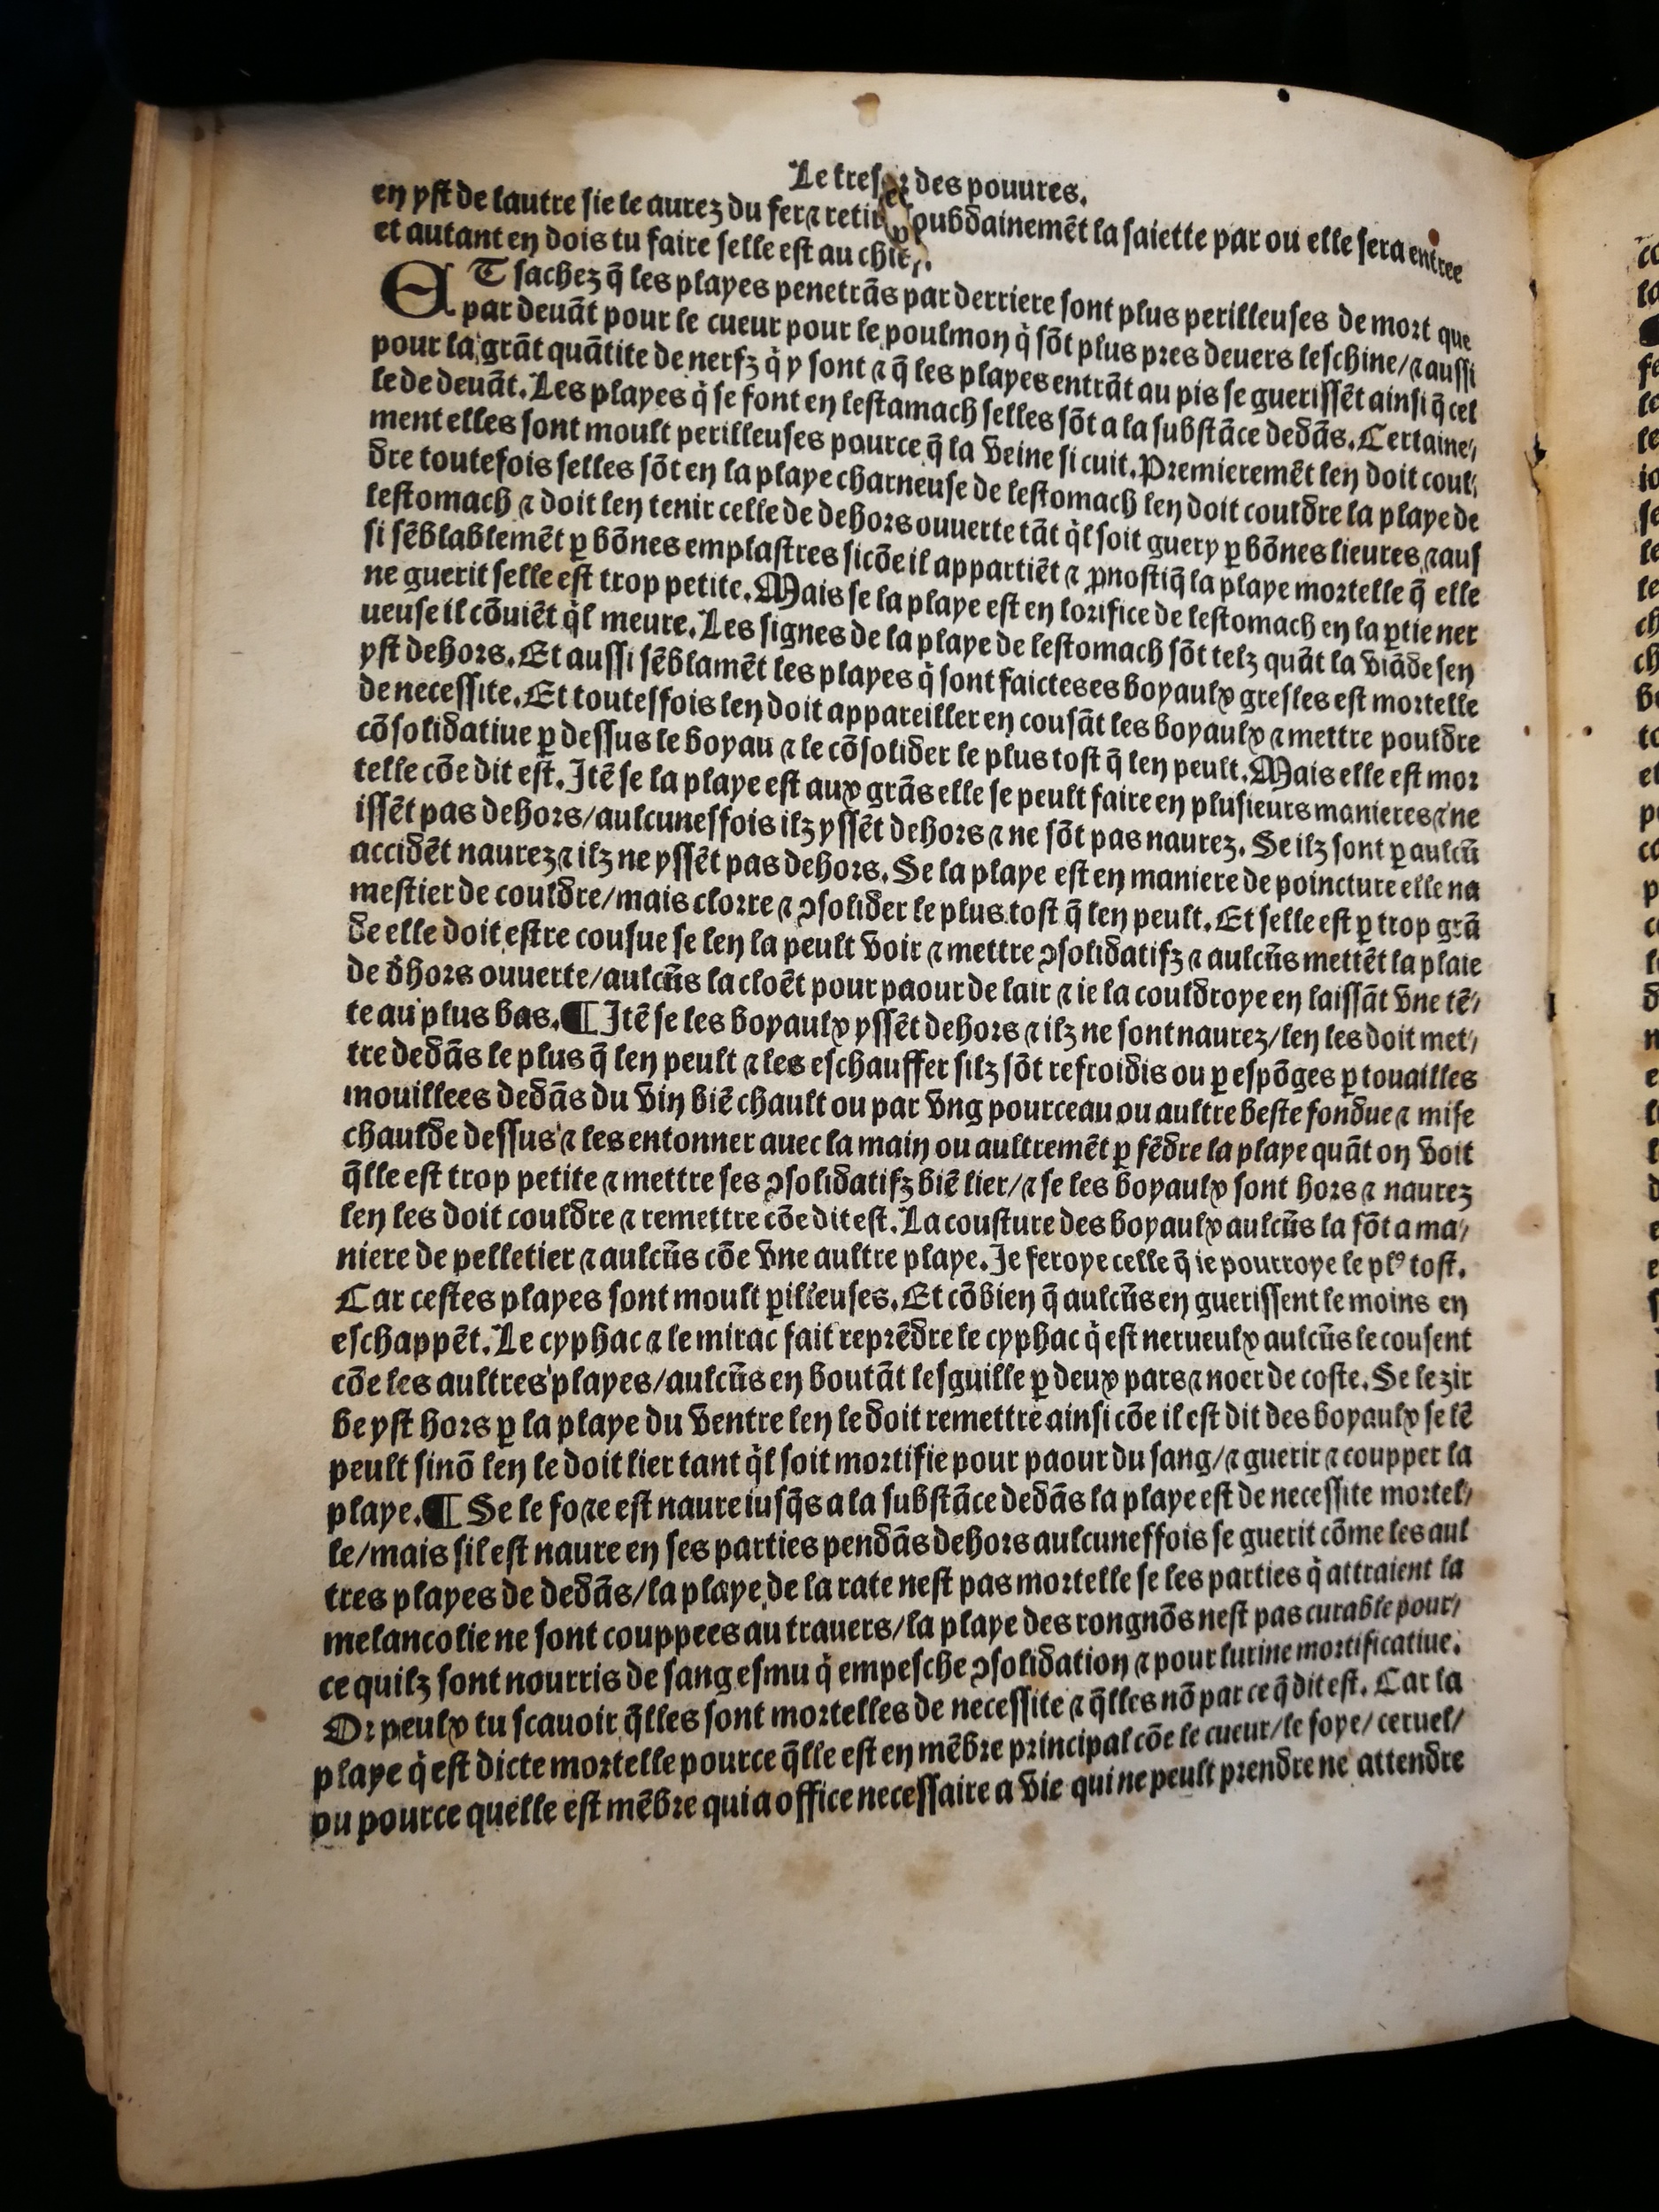 Le tresor des pouures.
en yst de lautre sie le aurez du fer ⁊ retir soubdainemēt la saiette par ou elle sera entree
et autant en dois tu faire selle est au chie
ET sachez q̄ les playes penetrās par derriere sont plus perilleuses de mort que
par deuāt pour le cueur pour le poulmon q̇ sōt plus pres deuers leschine/⁊ aussi
pour la grāt quātite de nerfz q̇ y sont ⁊ q̄ les playes entrāt au pis se guerissēt ainsi q̄ cel
le de deuāt. Les playes q̇ se font en lestamach selles sōt a la substāce dedās. Certaine⸗
ment elles sont moult perilleuses pource q̄ la veine si cuit. Premieremēt len doit coul⸗
dre toutefois selles sōt en la playe charneuse de lestomach len doit couldre la playe de
lestomach ⁊ doit len tenir celle de dehors ouuerte tāt q̇l soit guery ꝑ bōnes lieures ⁊ aus
si sēblablemēt ꝑ bōnes emplastres sicōe il appartiēt ⁊ ꝓnostiq̄ la playe mortelle q̄ elle
ne guerit selle est trop petite. Mais se la playe est en lorifice de lestomach en la ꝑtie ner
ueuse il cōuiēt q̇l meure. Les signes de la playe de lestomach sōt telz quāt la viāde sen
yst dehors. Et aussi sēblamēt les playes q̇ sont faictes es boyaulx gresles est mortelle
de necessite. Et toutesfois len doit appareiller en cousāt les boyaulx ⁊ mettre pouldre
cōsolidatiue ꝑ dessus le boyau ⁊ le cōsolider le plus tost q̄ len peult. Mais elle est mor
telle cōe dit est. Itē se la playe est aux grās elle se peult faire en plusieurs manieres ⁊ ne
issēt pas dehors/aulcunesfois ilz yssēt dehors ⁊ ne sōt pas naurez. Se ilz sont ꝑ aulcū
accidēt naurez ⁊ ilz ne yssēt pas dehors. Se la playe est en maniere de poincture elle na
mestier de couldre/mais clorre ⁊ ɔsolider le plus tost q̄ len peult. Et selle est ꝑ trop grā
de elle doit estre cousue se len la peult voir ⁊ mettre ɔsolidatifz ⁊ aulcūs mettēt la plaie
de dhors ouuerte/aulcūs la cloēt pour paour de lair ⁊ ie la couldroye en laissāt vne tē⸗
te au plus bas. ¶ Itē se les boyaulx yssēt dehors ⁊ ilz ne sont naurez/len les doit met⸗
tre dedās le plus q̄ len peult ⁊ les eschauffer silz sōt refroidis ou ꝑ espōges ꝑ touailles
mouillees dedās du vin biē chault ou par vng pourceau ou aultre beste fondue ⁊ mise
chaulde dessus ⁊ les entonner auec la main ou aultremēt ꝑ fēdre la playe quāt on voit
q̄lle est trop petite ⁊ mettre ses ɔsolidatifz biē lier/⁊ se les boyaulx sont hors ⁊ naurez
len les doit couldre ⁊ remettre cōe dit est. La cousture des boyaulx aulcūs la fōt a ma⸗
niere de pelletier ⁊ aulcūs cōe vne aultre playe. Je feroye celle q̄ ie pourroye le plꝰ tost.
Car cestes playes sont moult ꝑilleuses. Et cōbien q̄ aulcūs en guerissent le moins en
eschappēt. Le cyphac ⁊ le mirac fait reprēdre le cyphac q̇ est nerueulx aulcūs le cousent
cōe les aultres playes/aulcūs en boutāt lesguille ꝑ deux pars ⁊ noer de coste. Se le zir
be yst hors ꝑ la playe du ventre len le doit remettre ainsi cōe il est dit des boyaulx se lē
peult sinō len le doit lier tant q̇l soit mortifie pour paour du sang/⁊ guerir ⁊ coupper la
playe. ¶ Se le foꝛe est naure iusq̄s a la substāce dedās la playe est de necessite mortel⸗
le/mais sil est naure en ses parties pendās dehors aulcunesfois se guerit cōme les aul
tres playes de dedās/la playe de la rate nest pas mortelle se les parties q̇ attraient la
melancolie ne sont couppees au trauers/la playe des rongnōs nest pas curable pour⸗
ce quilz sont nourris de sang esmu q̇ empesche ɔsolidation ⁊ pour lurine mortificatiue.
Or peulx tu scauoir q̄lles sont mortelles de necessite ⁊ q̄lles nō par ce q̄ dit est. Car la
playe q̇ est dicte mortelle pource q̄lle est en mēbre principal cōe le cueur/le foye/ceruel/
ou pource quelle est mēbre qui a office necessaire a vie qui ne peult prendre ne attendre